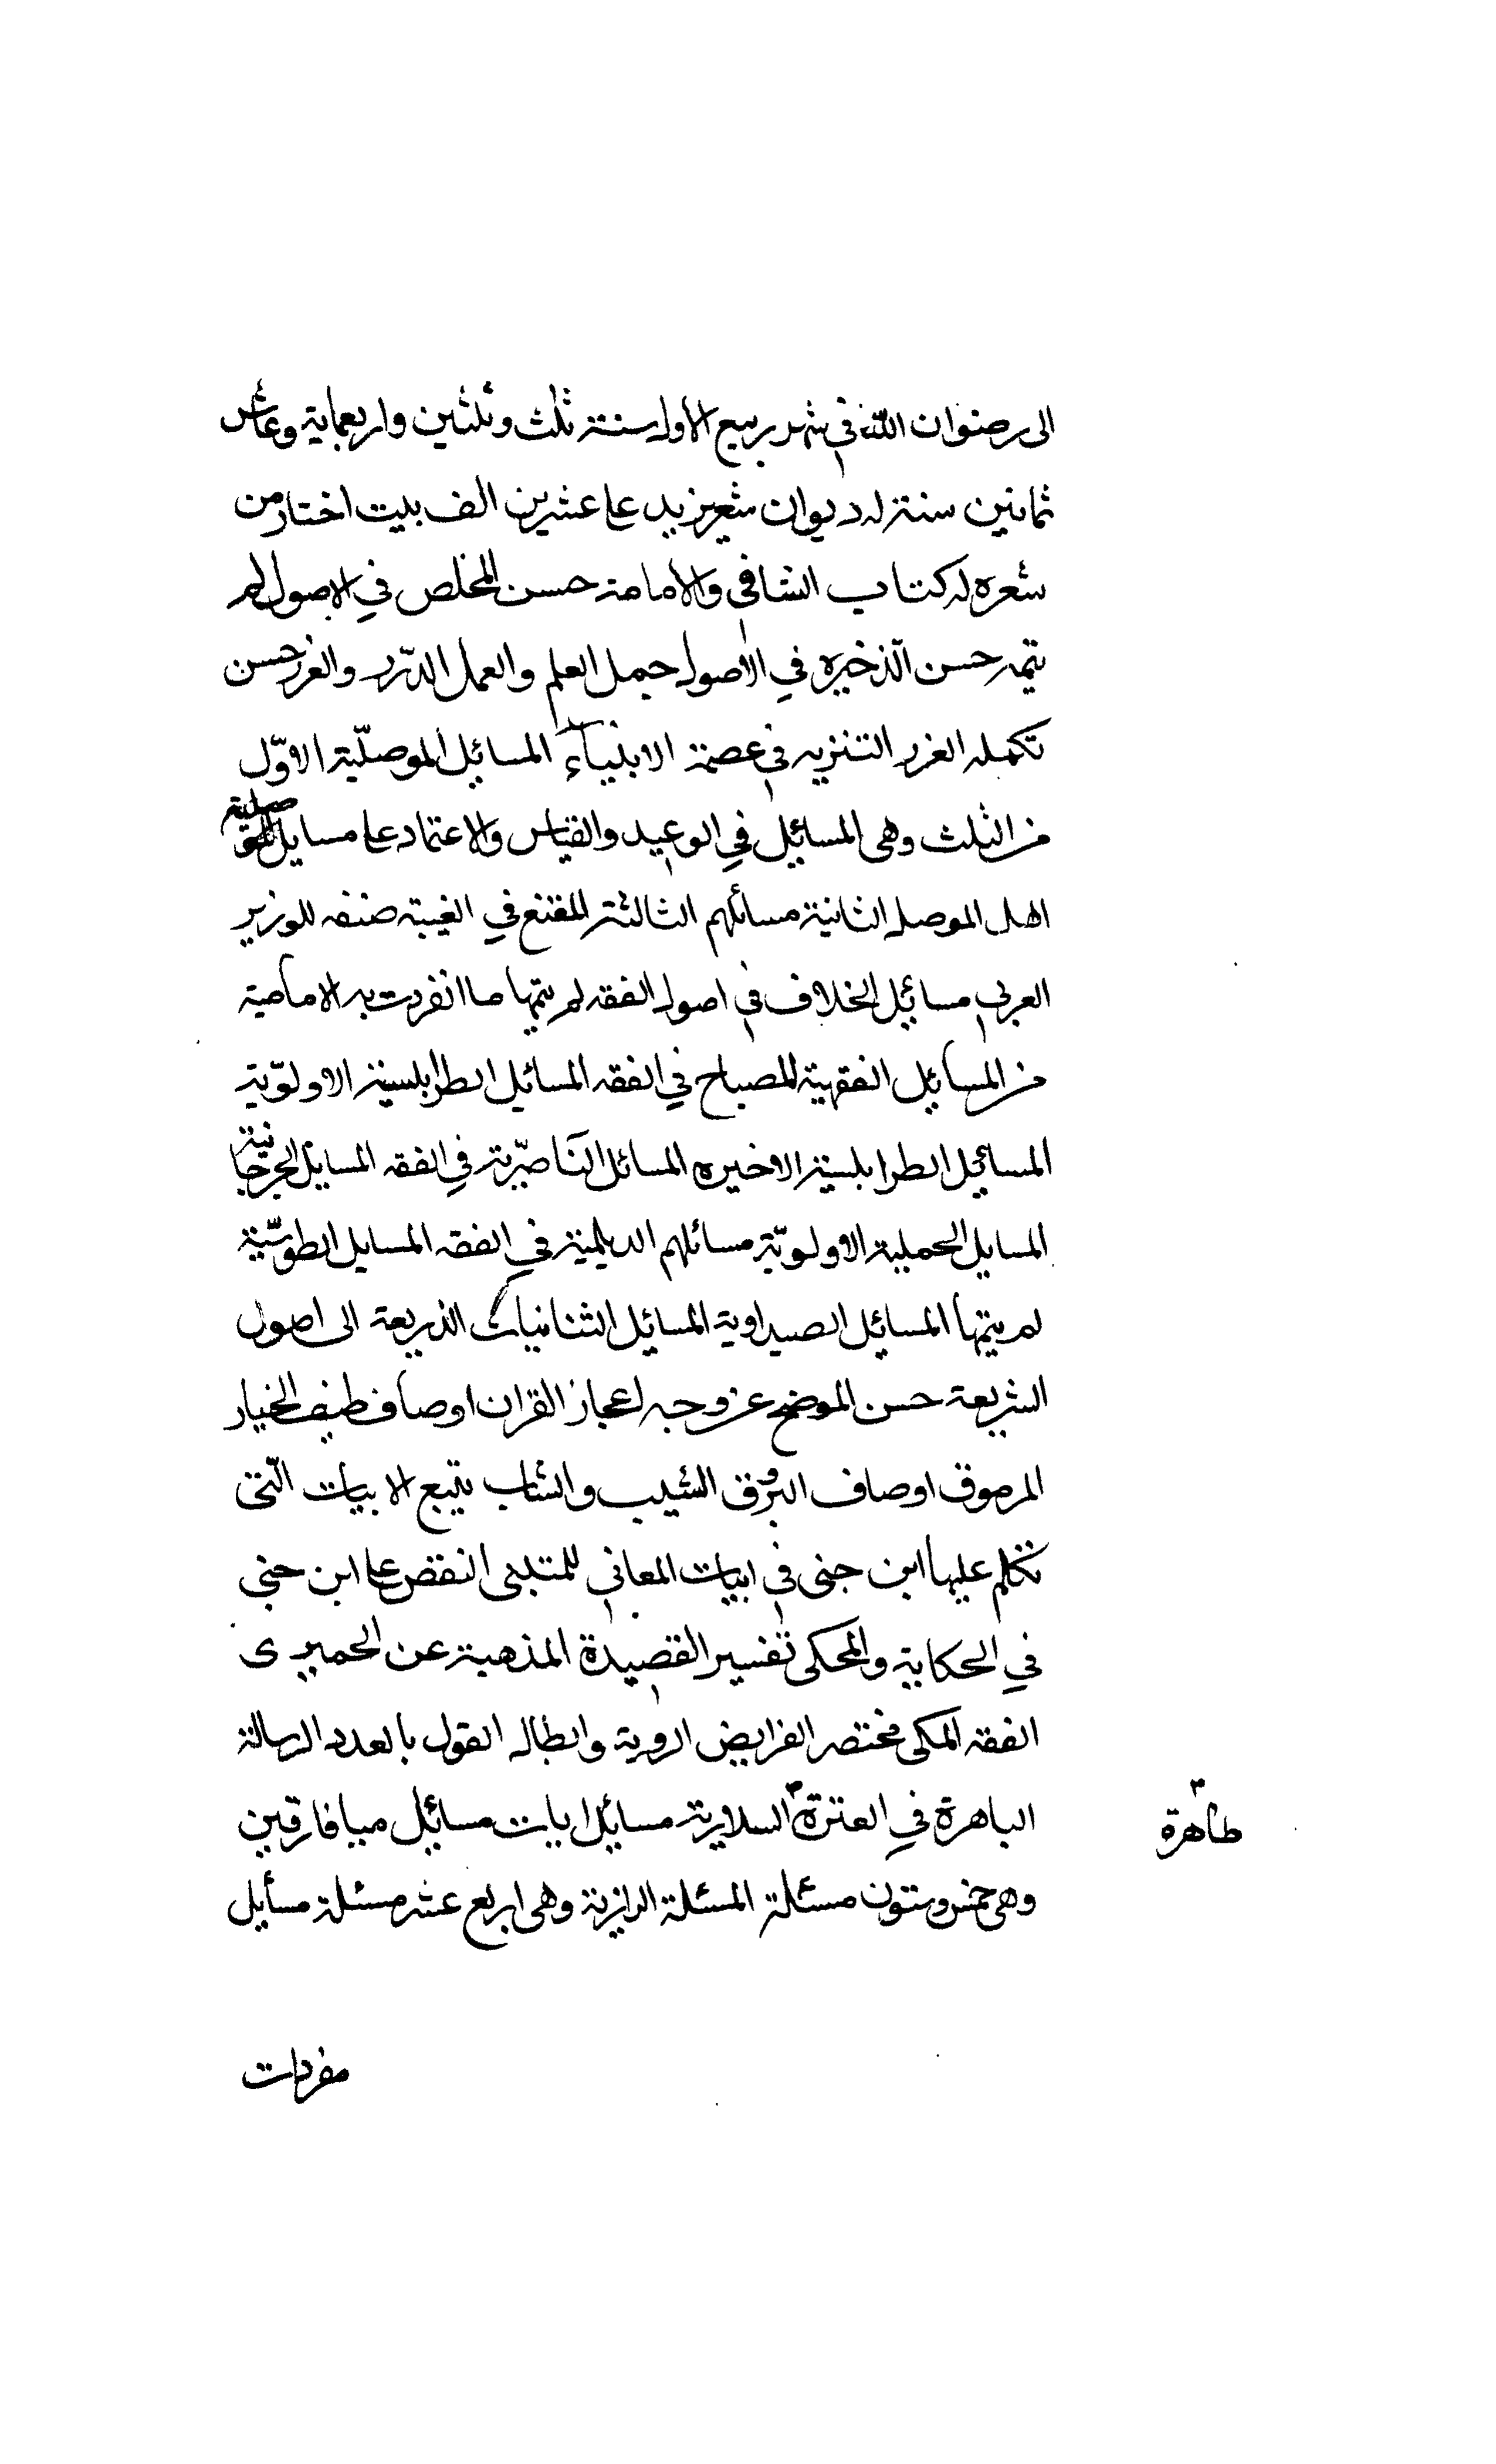 الى رضوان الله في شهر ربيع الاول سنة ثلث وثلثين واربعماية وعاش
ثمانين سنة له ديوان شعر يزيد على عشرين الف بيت اختار من
شعره له كتاب الشافي والامامة حسن الملخص في الاصول لم
يتمه حسن الذخيره في الاصول جمل العلم والعمل الدّرر والغرر حسن
تكمله الغرر التنزيه في عصمة الانبياء المسائل الموصلّية الاوّل
من الثلث وهى المسائل في الوعيد والقياس والاعتماد على مسايل الموصلية
اهل الموصل الثانية مسائلهم الثالثة المقنع في الغيبة صنفه للوزير
العربي مسائل الخلاف في اصول الفقه لم يتمها ما انفردت به الامامية
من المسائل الفقهية المصباح في الفقه المسائل الطرابلسية الاولوّية
المسائل الطرابلسية الاخيره المسائل الناصرّية في الفقه المسايل الجرجانية
المسايل الحملبية الاولوّية مسائلهم الديلمية في الفقه المسايل الطوسّية
لم يتمها المسائل الصيداوية المسائل الثنانيات الذريعة الى اصول
الشريعة حسن الموضح عن وجه اعجاز القران اوصاف طيف الخيار
المرموق اوصاف البروق الشيب والشاب يتبع الابيات الّتى
تكلم عليها ابن جنى في ابيات المعاني للمتنبى النقض على ابن جني
في الحكاية والمحكى تفسير القصيدة المذهبة عن الحميرى
الفقه المكى مختصر الفرايض الروية وابطال القول بالعدد الرسالة
الباهرة في العترة السلارية مسائل ايات مسائل ميافارقين
طاهرة
وهى خمس وستون مسئلة المسئلة الرازية وهى اربع عشر مسئلة مسأيل
مفردات